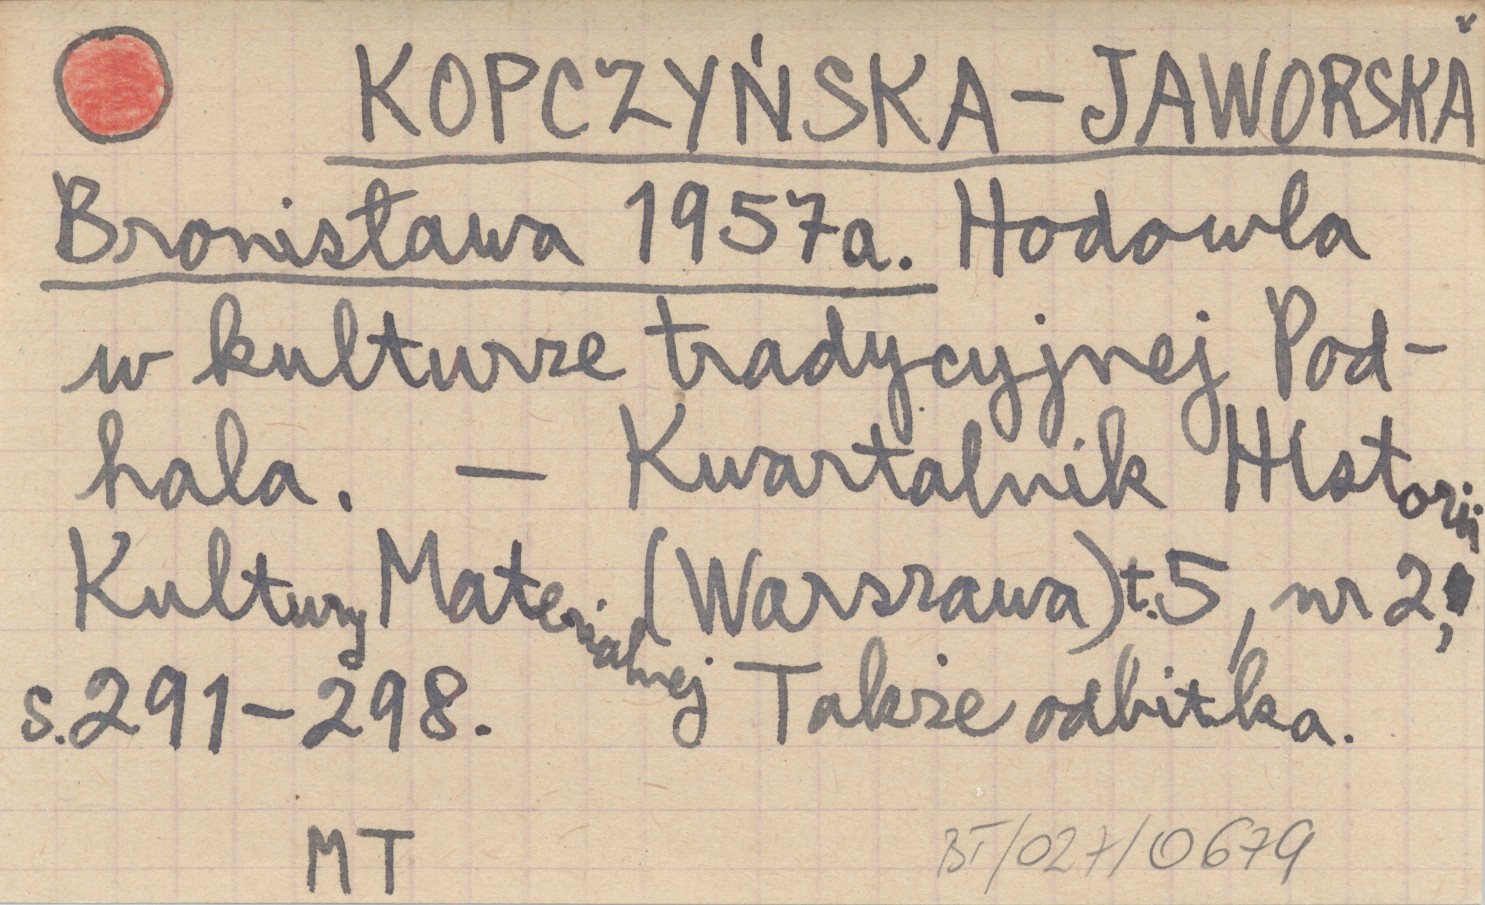 KOPCZYŃSKA-JAWORSKA
Bronisława 1957a. Hodowla
w kulturze tradycyjnej Pod-
hala. — Kwartalnik Historii
Kultury Materialnej (Warszawa) t.5, nr 2,
s.291-298. Także odbitka.
MT
BT/027/0679